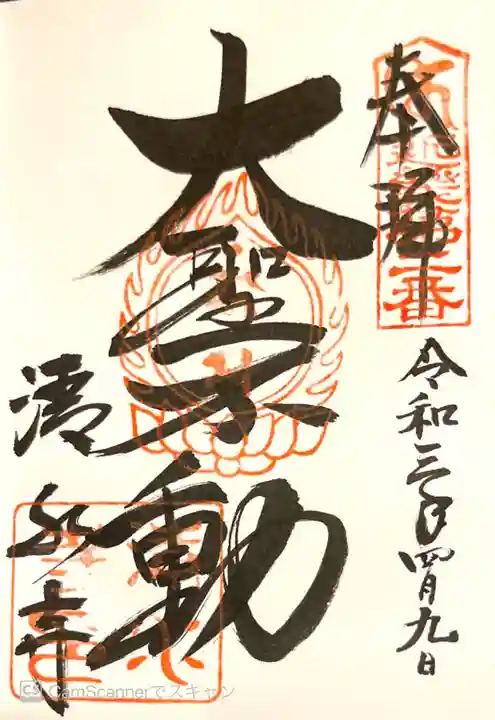 奉拝
令和三年四月九日
大聖不動
清水寺
二番
CS CamScannerでスキャン